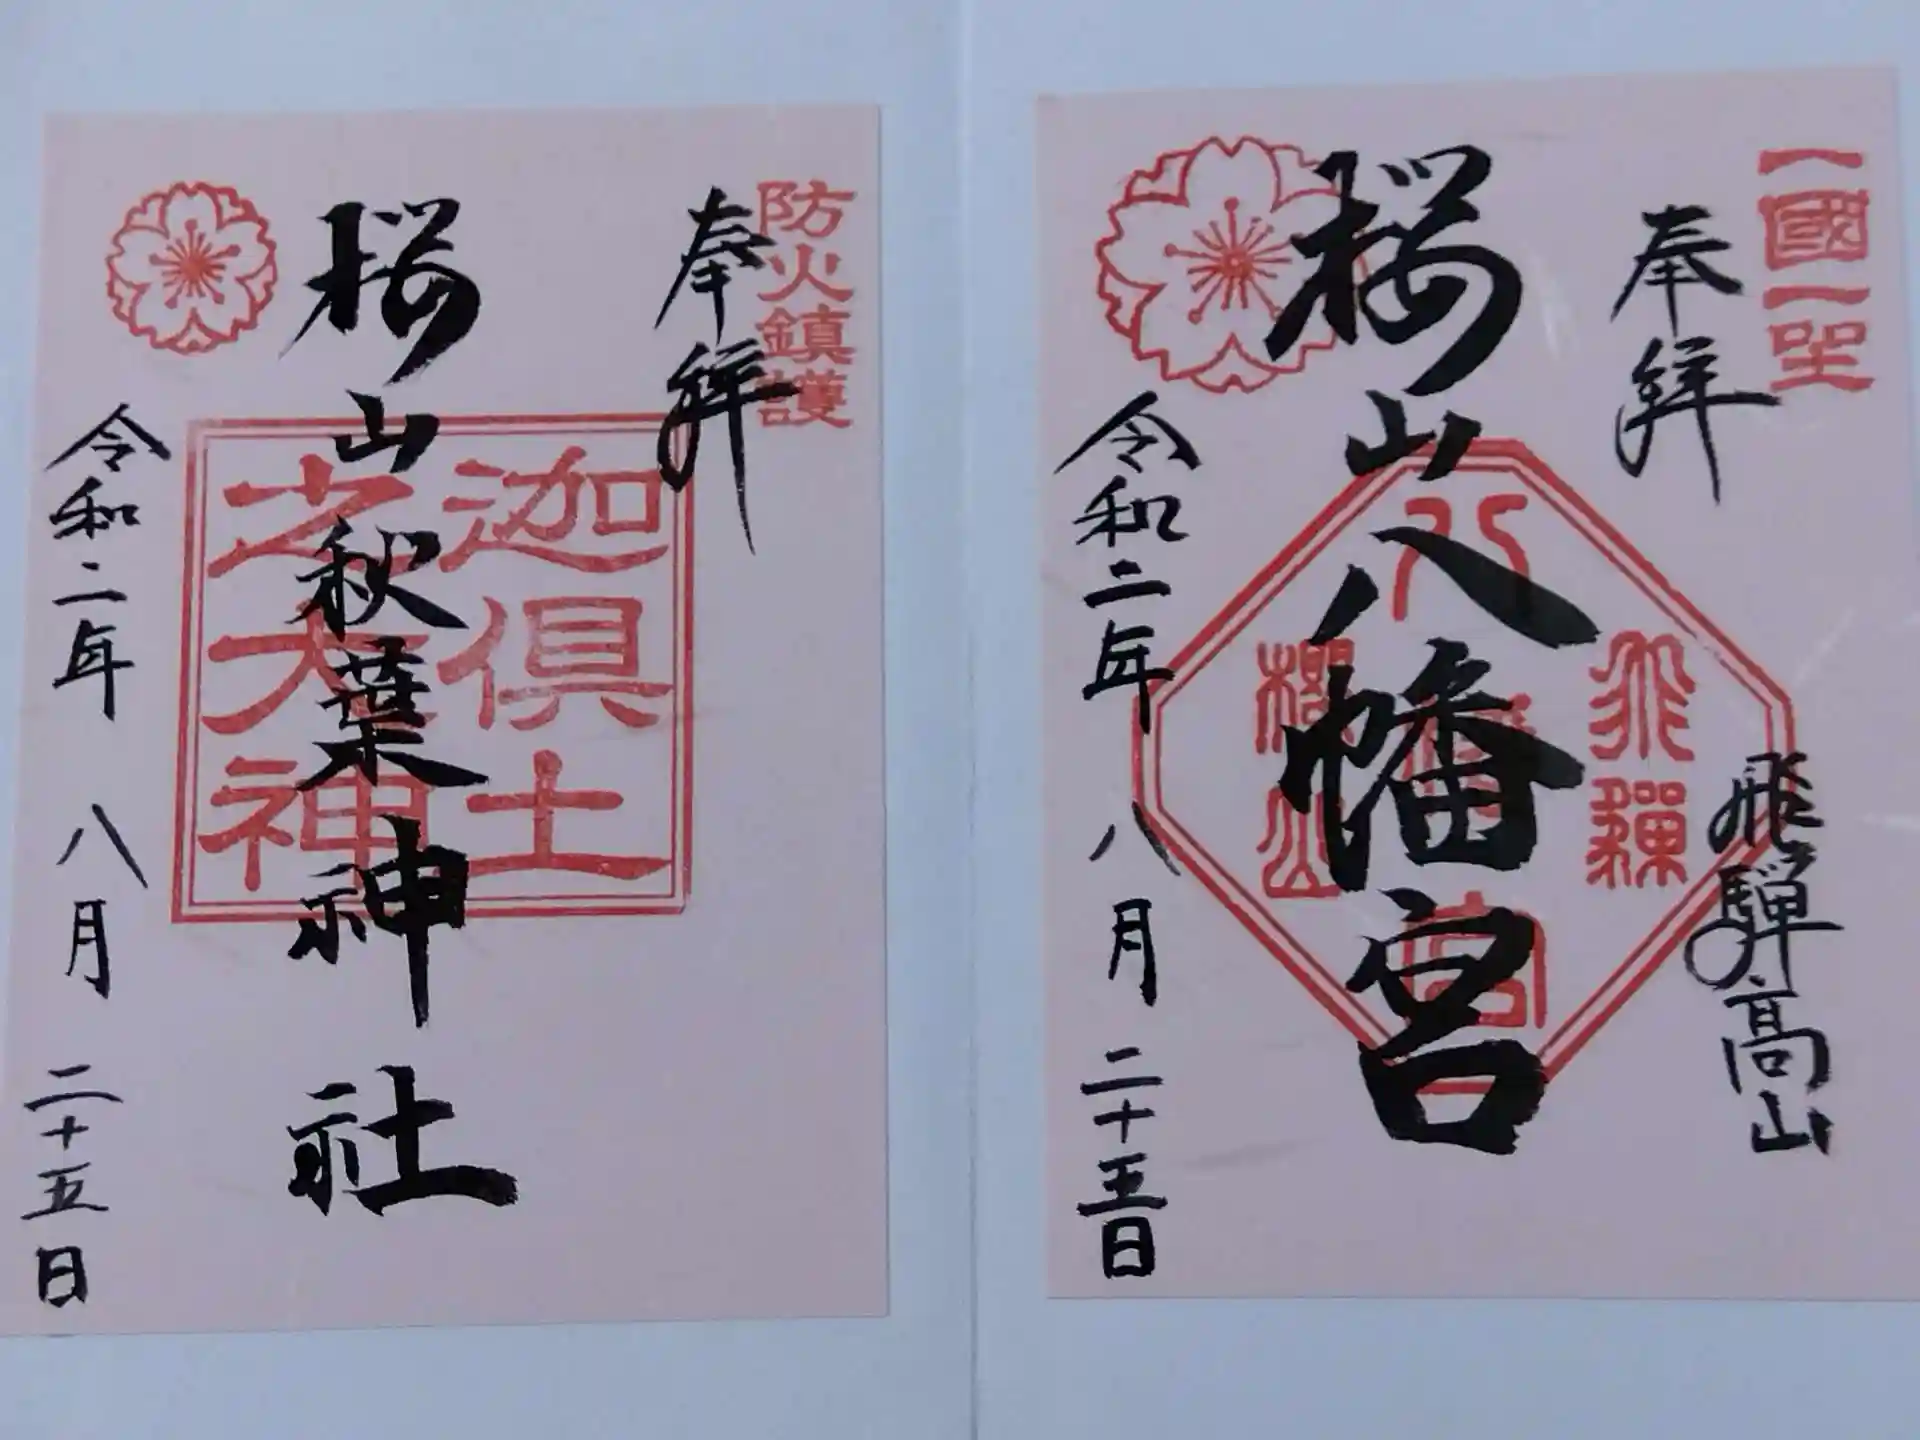 一國一
奉拝
飛騨高山
桜山八幡宮
飛驒
八幡宮
櫻山
令和二年八月二十五日
防火鎮護
奉拝
桜山秋葉神社
迦倶土
之大神
令和二年八月二十五日